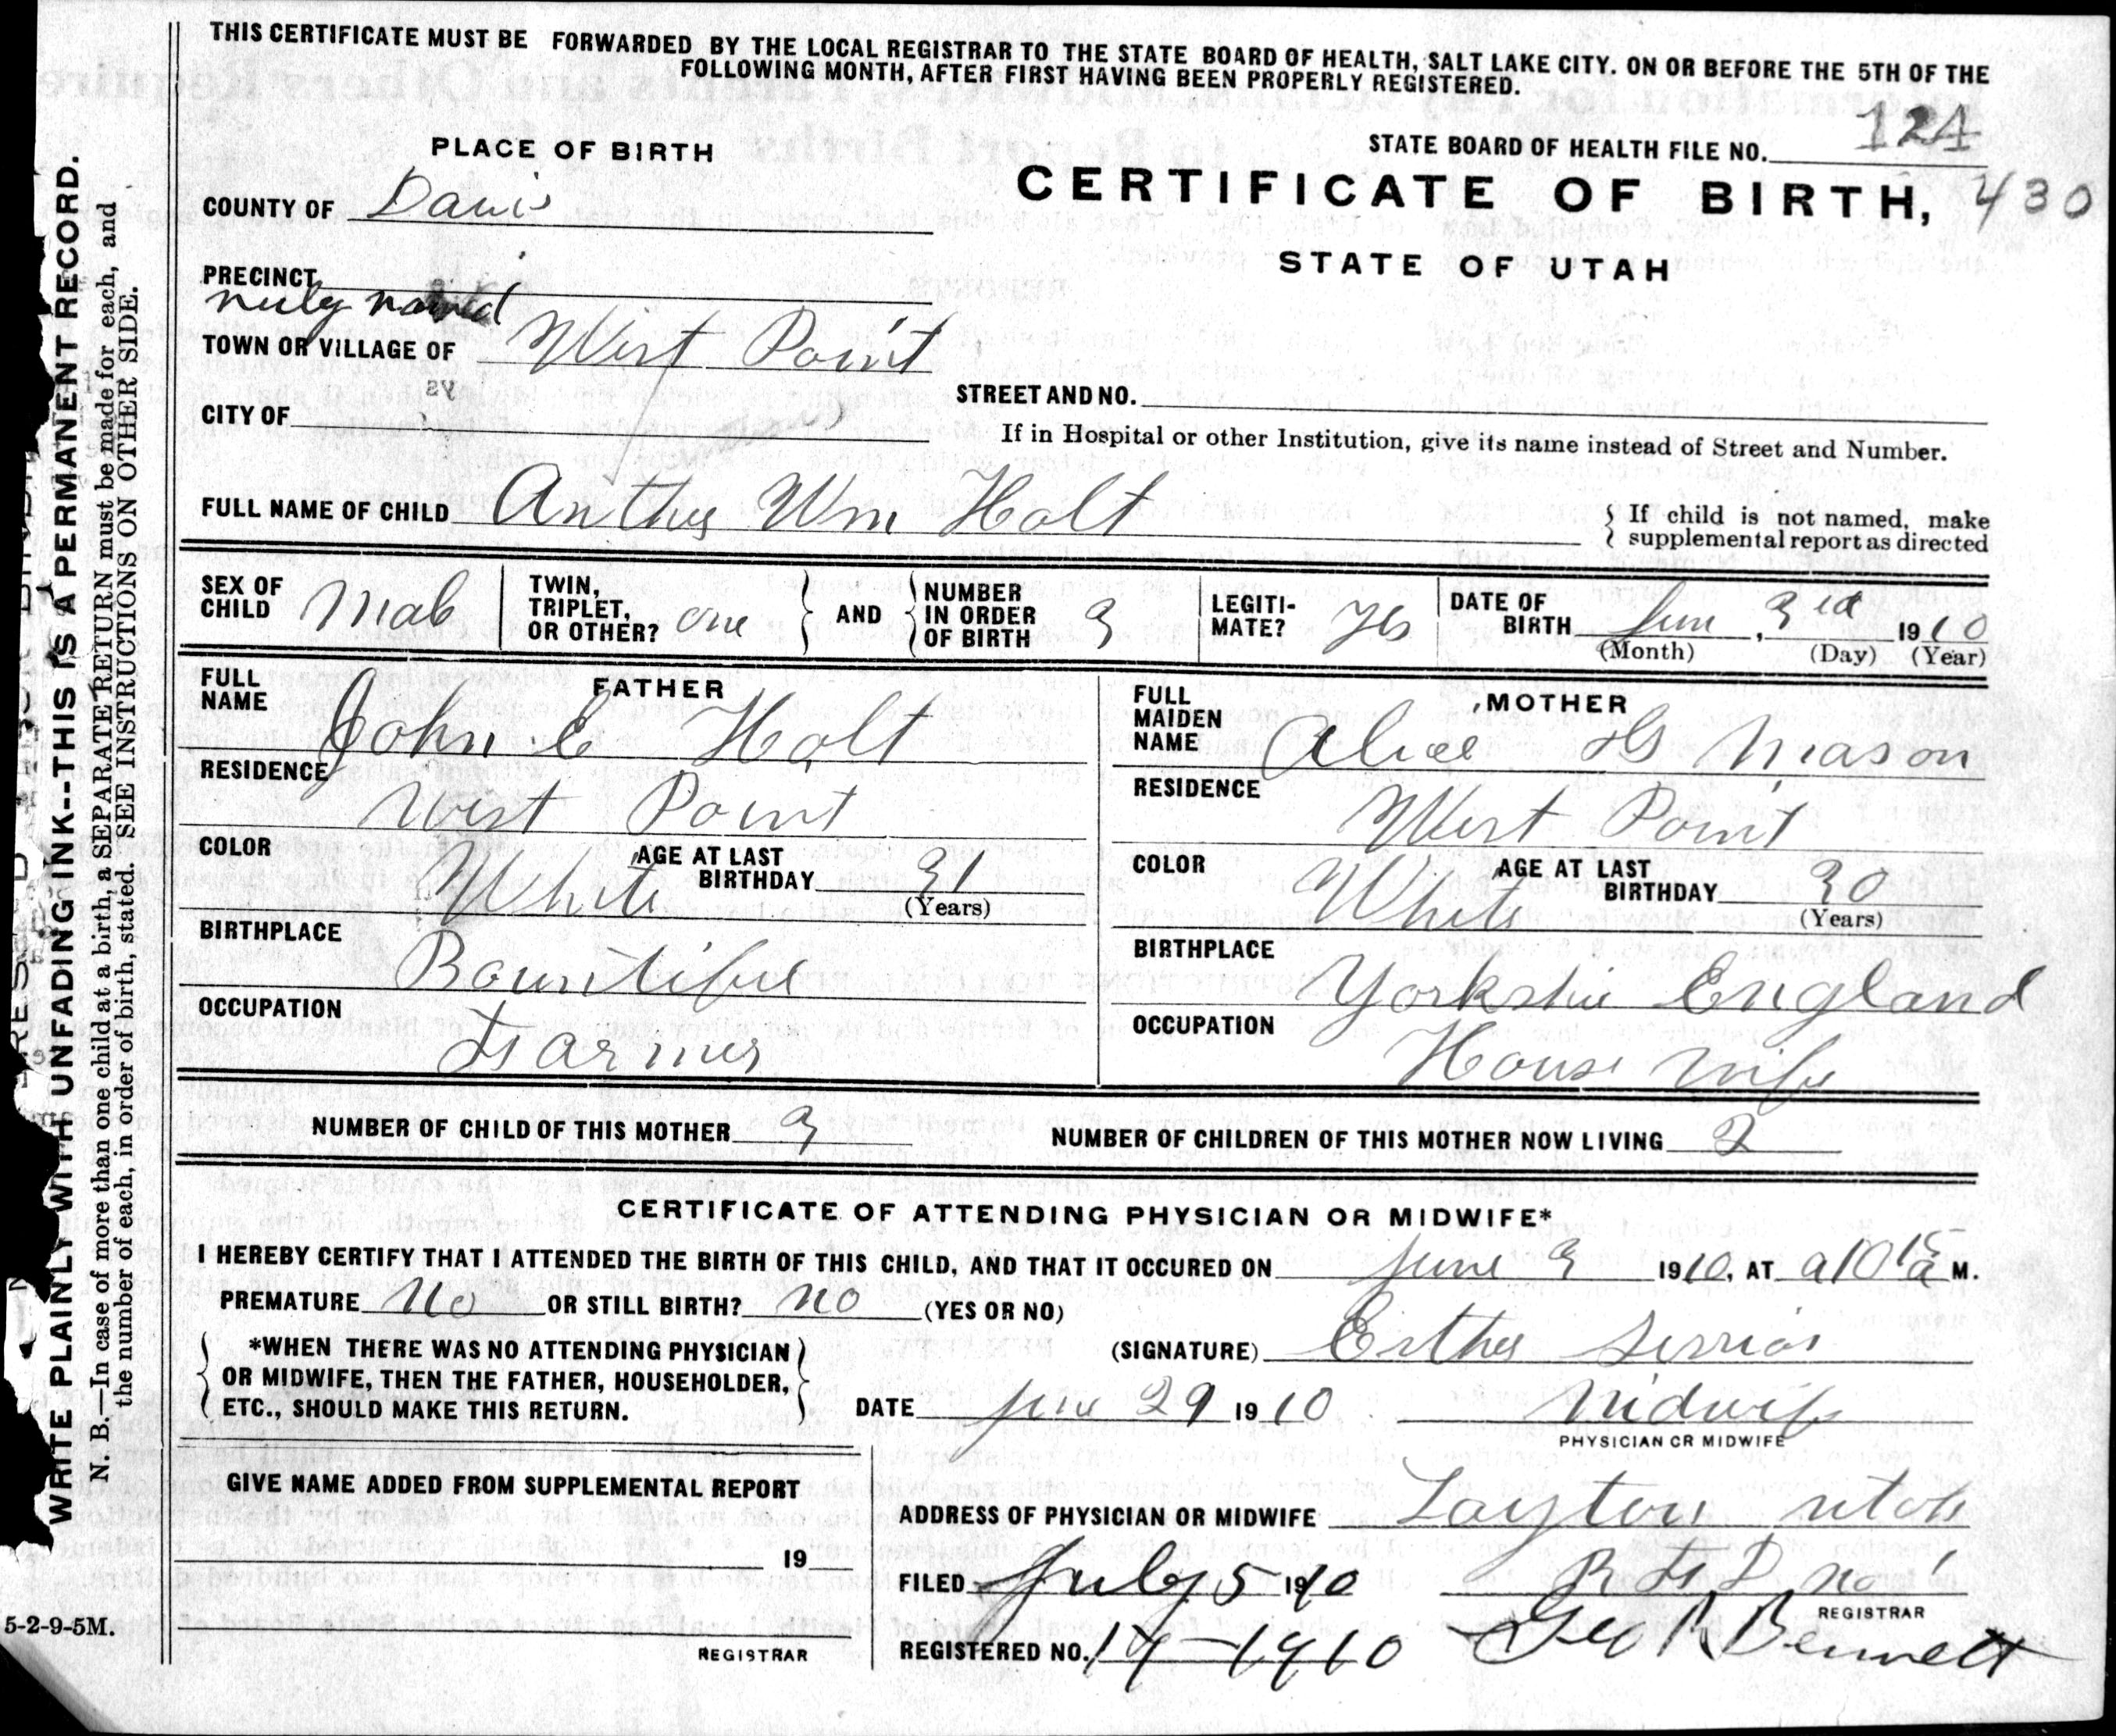 THIS CERTIFICATE MUST BE FORWARDED BY THE LOCAL REGISTRAR TO THE STATE BOARD OF HEALTH, SALT LAKE CITY. ON OR BEFORE THE 5TH OF THE
FOLLOWING MONTH, AFTER FIRST HAVING BEEN PROPERLY REGISTERED.
PLACE OF BIRTH
STATE BOARD OF HEALTH FILE NO. 124
COUNTY OF Davis
CERTIFICATE OF BIRTH, 430
STATE OF UTAH
PRECINCT
named
TOWN OR VILLAGE OF West Point
STREET AND NO.
CITY OF
If in Hospital or other Institution, give its name instead of Street and Number.
FULL NAME OF CHILD Wm Holt
If child is not named, make
supplemental report as directed
SEX OF CHILD Male
TWIN, TRIPLET, OR OTHER? one
AND
NUMBER IN ORDER OF BIRTH 3
LEGITI-MATE? Yes
DATE OF BIRTH June, 3rd 1910
(Month) (Day) (Year)
FATHER
FULL NAME John E Holt
RESIDENCE West Point
COLOR White
AGE AT LAST BIRTHDAY 31
(Years)
BIRTHPLACE Bountiful
OCCUPATION Farmer
MOTHER
FULL MAIDEN NAME Alice G Mason
RESIDENCE West Point
COLOR White
AGE AT LAST BIRTHDAY 30
(Years)
BIRTHPLACE Yorkshire England
OCCUPATION House wife
NUMBER OF CHILD OF THIS MOTHER 3
NUMBER OF CHILDREN OF THIS MOTHER NOW LIVING 2
CERTIFICATE OF ATTENDING PHYSICIAN OR MIDWIFE*
I HEREBY CERTIFY THAT I ATTENDED THE BIRTH OF THIS CHILD, AND THAT IT OCCURED ON June 3 1910, AT a 10 15 a M.
PREMATURE No OR STILL BIRTH? no (YES OR NO)
*WHEN THERE WAS NO ATTENDING PHYSICIAN
OR MIDWIFE, THEN THE FATHER, HOUSEHOLDER,
ETC., SHOULD MAKE THIS RETURN.
(SIGNATURE) Esther
DATE June 29 1910 Midwife
PHYSICIAN OR MIDWIFE
GIVE NAME ADDED FROM SUPPLEMENTAL REPORT
19
REGISTRAR
ADDRESS OF PHYSICIAN OR MIDWIFE Layton utah
FILED July 5 1910 R F D no 1
REGISTRAR
REGISTERED NO. 14-1910 Geo R Bennett
5-2-9-5M.
WRITE PLAINLY WITH UNFADING INK--THIS IS A PERMANENT RECORD.
N. B.—In case of more than one child at a birth, a SEPARATE RETURN must be made for each, and
the number of each, in order of birth, stated. SEE INSTRUCTIONS ON OTHER SIDE.